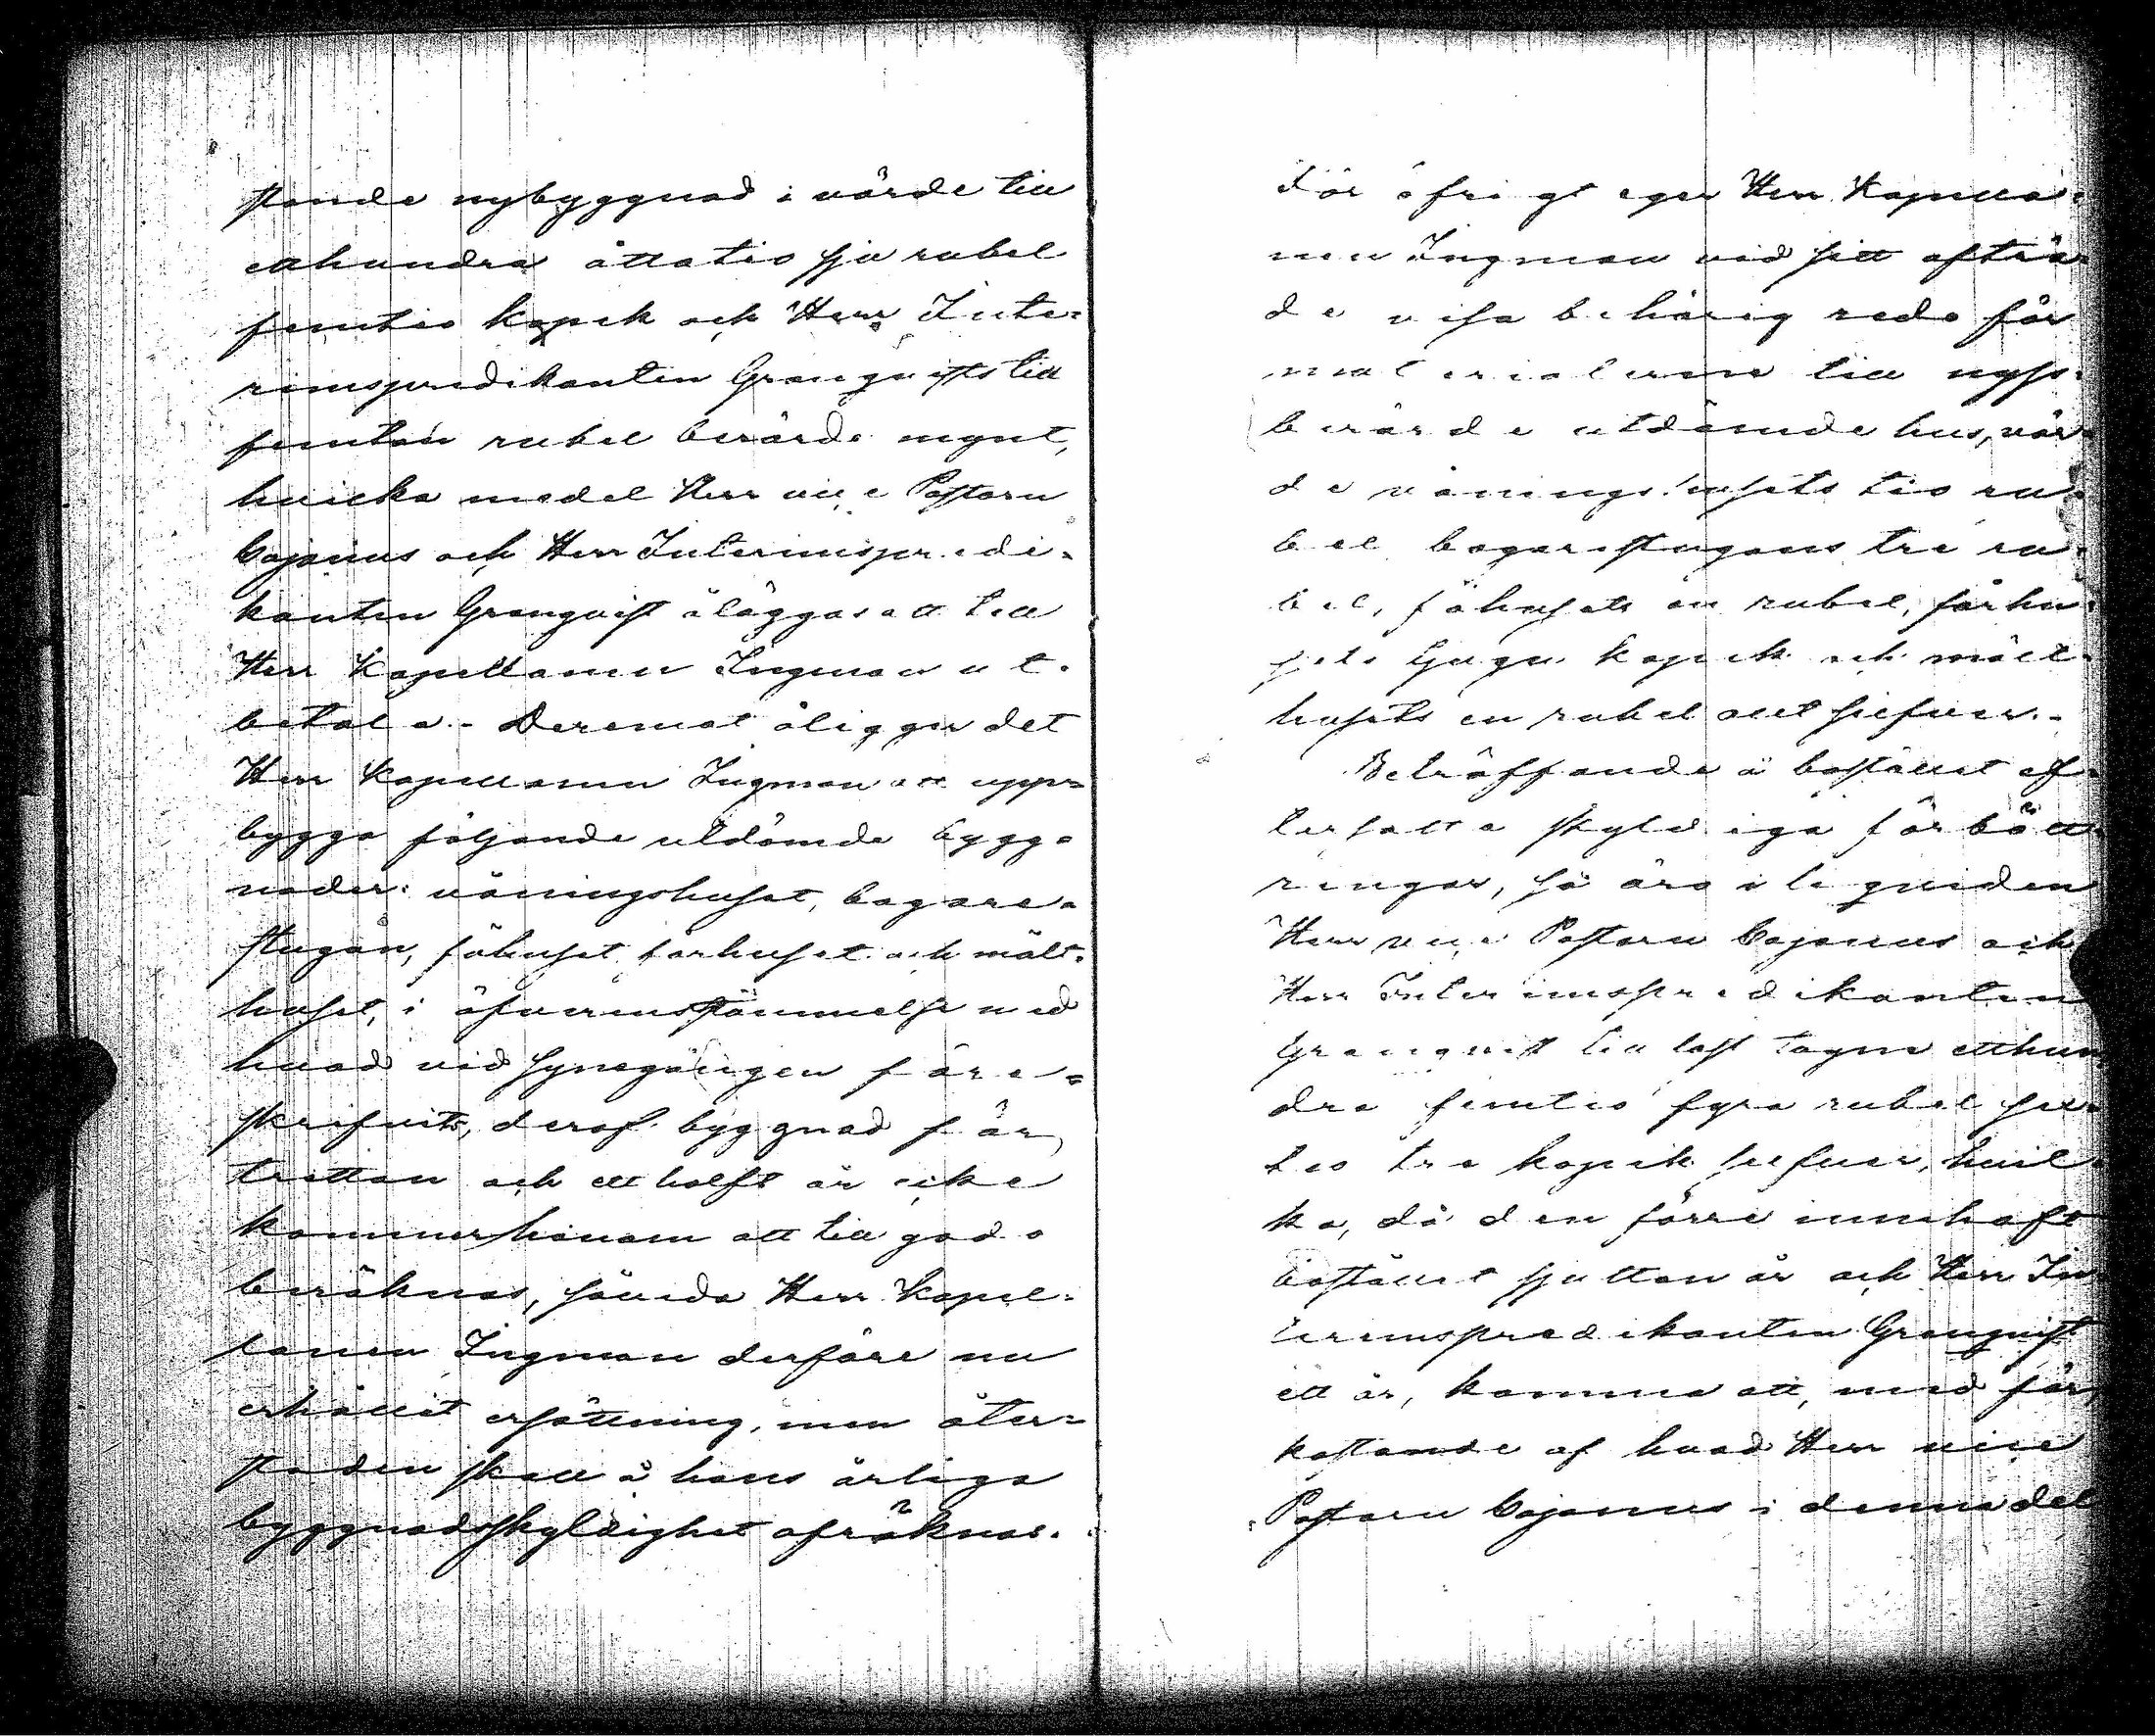 stande nybyggnad i värde till
etthundra åttatio sju rubel
femtio kopek och Herr Inte-
rimspredikanten Granqvists till
femton rubel berörde mynt,
hvilka medel Herr vice Pastorn
Cajanus och Herr Interimspredi-
kanten Granqvist åläggas att till
Herr Kapellanen Ingman ut-
betala. - Deremot åligger det
Herr Kapellanen Ingman att upp-
bygga följande utdömde bygg-
nader: våningshuset, bagare-
stugan, fähuset, fårhuset och mält-
huset, i öfverensstämmelse med
hvad vid synegången före-
skrifvits, deraf byggnad för
tretton och ett halft år icke
kommer honom att till godo
beräknas, såvida Herr Kapel-
lanen Ingman derföre nu
erhållit ersättning, men åter-
stoden skall å hans årliga
byggnadsskyldighet afräknas.
För öfrigt eger Herr Kapella-
nen Ingman vid sitt afträ-
de visa behörig reda för
materialierne till nyss-
berörde utdömde hus, vär-
de våningshusets tio ru-
bel, bagarestugans tre ru-
bel, fähusets en rubel, fårhu-
sets tjugu kopek och mält-
husets en rubel allt silfver. -
Beträffande å bostället ef-
tersatte skyldiga förbätt-
ringar, så äro i liqviden
Herr vice Pastorn Cajanus och
Herr Interimspredikanten
Granqvist till last tagne etthun
dra femtio fyra rubel sex-
tio tre kopek silfver, hvil-
ka, då den förre innehaft
bostället sjutton år och Herr In
terimspredikanten Granqvist
ett år, komma att, med för,
kastande af hvad Herr vice
Pastorn Cajanus i denna del